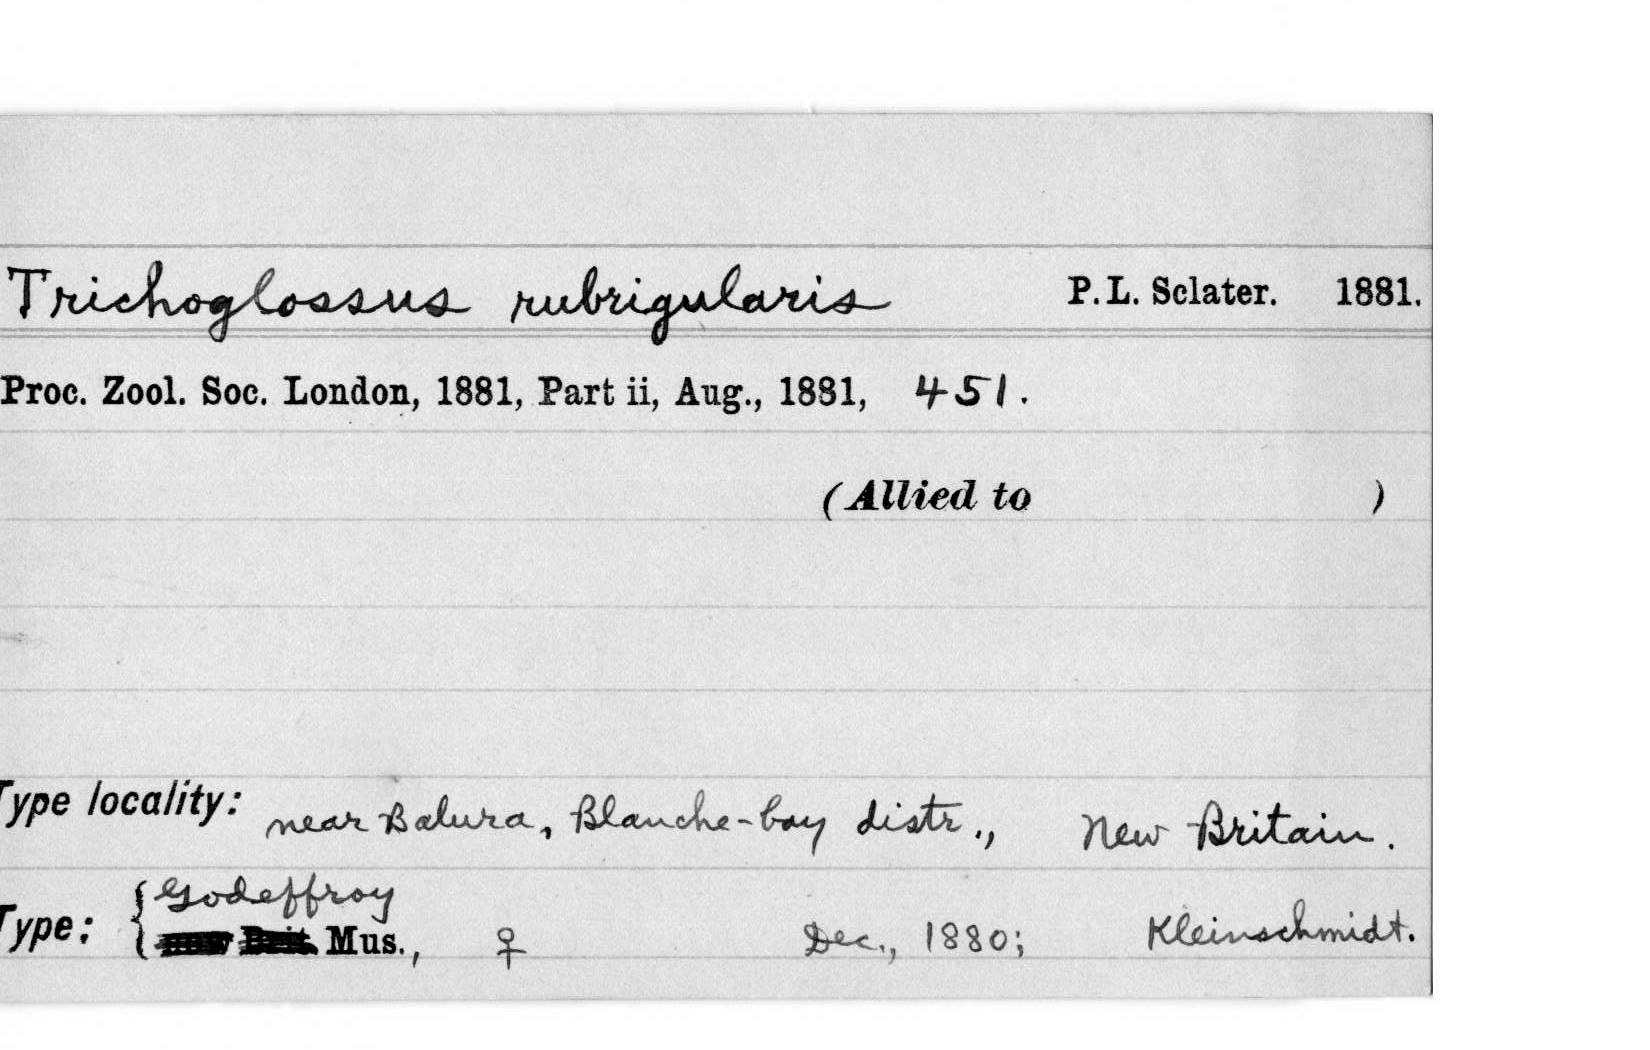 Trichoglossus rubrigularis P. L. Sclater. 1881.
Proc. Zool. Soc. London, 1881, Part ii, Aug., 1881, 451.
(Allied to )
Type locality: near Balura, Blanche-bay distr., New Britain.
Godeffroy
Type: { now Brit. Mus., ♀ Dec., 1880; Kleinschmidt.